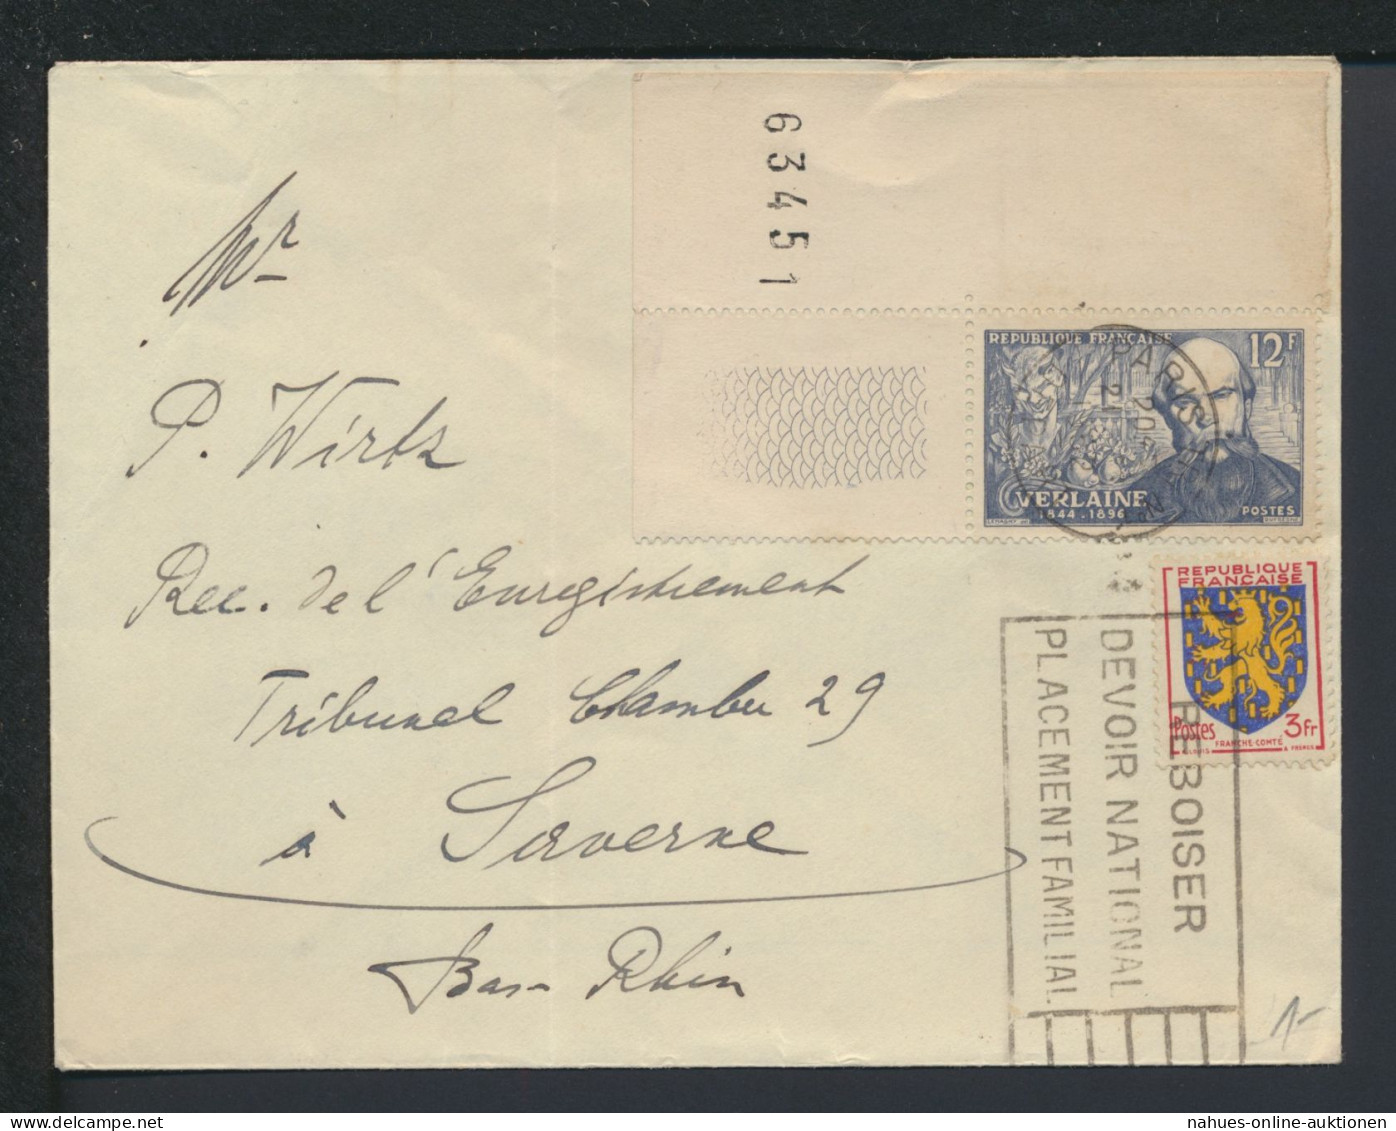 63451
REPUBLIQUE FRANÇAISE 12F
VERLAINE
1844-1896
POSTES
PARIS
REPUBLIQUE
FRANÇAISE
Postes 3fr
FRANCHE-COMTÉ
REBOISER
DEVOIR NATIONAL
PLACEMENT FAMILIAL
Mr
P. Wirtz
Rec. de l'Enregistrement
Tribunal Chambre 29
à Saverne
Bas-Rhin
1-
nahues-online-auktionen